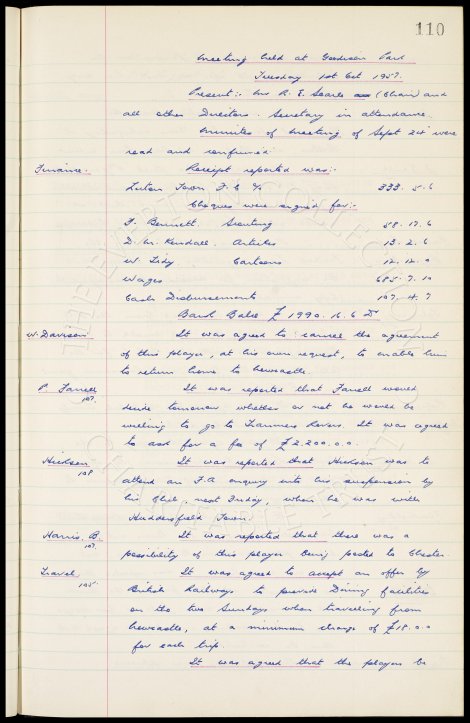 110
Meeting held at Goodison Park
Tuesday 1st Oct 1957.
Present:- Mr R. E. Searle (Chair) and
all other Directors. Secretary in attendance.
Minutes of Meeting of Sept 24th were
read and confirmed.
Finance. Receipt reported was:-
Luton Town F.C. 333. 5. 6
Cheques were signed for:-
F. Bennett. Scouting 58. 17. 6
D. M. Kendall. Articles 13. 2. 6
W. Tidy. Cartoons 12. 12. 0
Wages 685. 7. 10
Cash Disbursements 107. 4. 7
Bank Balce £1990. 16. 6 Dr
W. Davison It was agreed to cancel the agreement
of this player, at his own request, to enable him
to return home to Newcastle.
P. Farrell It was reported that Farrell would
107. decide tomorrow whether or not he would be
willing to go to Tranmere Rovers. It was agreed
to ask for a fee of £2,200. 0. 0.
Hickson It was reported that Hickson was to
108 attend an F.A. enquiry into his suspension by
his Club, next Friday, when he was with
Huddersfield Town.
Harris. B. It was reported that there was a
107. possibility of this player being posted to Chester.
Travel It was agreed to accept an offer by
105. British Railways to provide Dining facilities
on the two Sundays when travelling from
Newcastle, at a minimum charge of £18. 0. 0
for each trip.
It was agreed that the players be
THE EVERTON COLLECTION
CHARITABLE TRUST